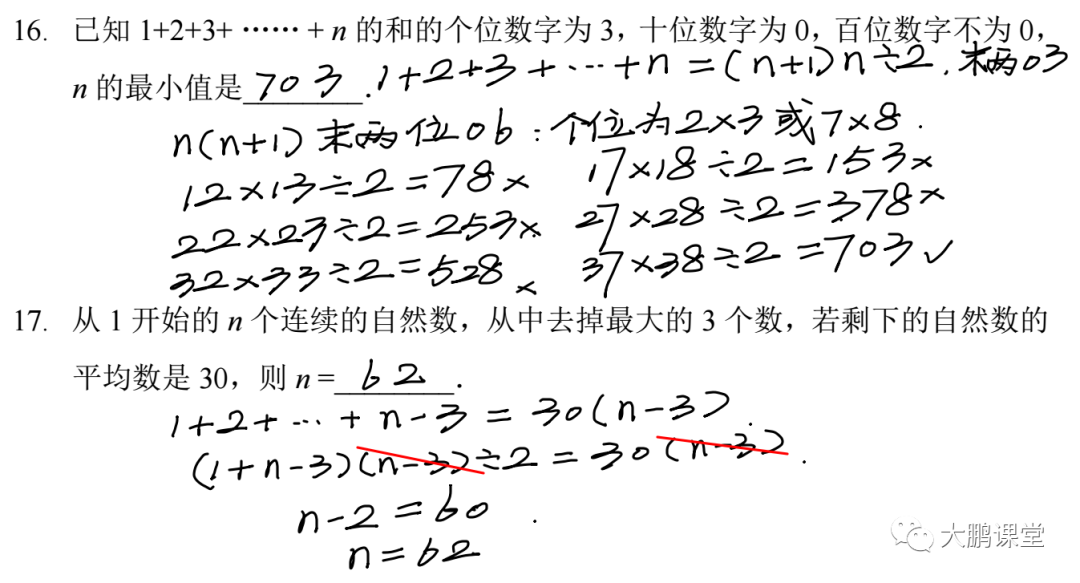 16. 已知 1+2+3+ …… + n 的和的个位数字为 3，十位数字为 0，百位数字不为 0，
n 的最小值是 703 . 1+2+3+…+n=(n+1)n÷2. 末两03
n(n+1) 末两位06：个位为2×3或7×8.
12×13÷2=78× 17×18÷2=153×
22×23÷2=253× 27×28÷2=378×
32×33÷2=528× 37×38÷2=703✓
17. 从 1 开始的 n 个连续的自然数，从中去掉最大的 3 个数，若剩下的自然数的
平均数是 30，则 n = 62 .
1+2+…+n-3=30(n-3).
(1+n-3)(n-3)÷2=30(n-3).
n-2=60.
n=62
大鹏课堂